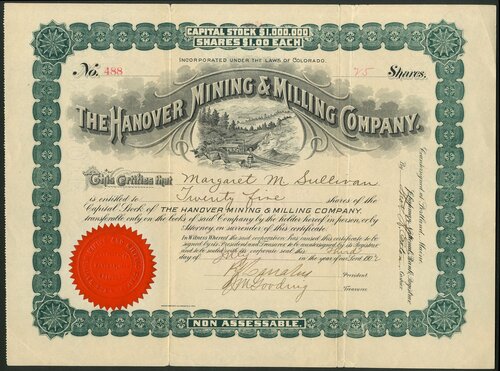 CAPITAL STOCK $1,000,000
SHARES $1.00 EACH
INCORPORATED UNDER THE LAWS OF COLORADO.
No. 488
25 Shares,
THE HANOVER MINING & MILLING COMPANY.
This Certifies that Margaret M Sullivan
is entitled to Twenty five shares of the
Capital Stock of THE HANOVER MINING & MILLING COMPANY.
transferable only on the books of said Company by the holder hereof in person, or by
Attorney, on surrender of this certificate.
In Witness Whereof the said corporation has caused this certificate to be
signed by its President and Treasurer, to be countersigned by its Registrar
and to be sealed with its corporate seal this
day of
President
Treasurer
Countersigned at Portland, Maine
By
NON ASSESSABLE.